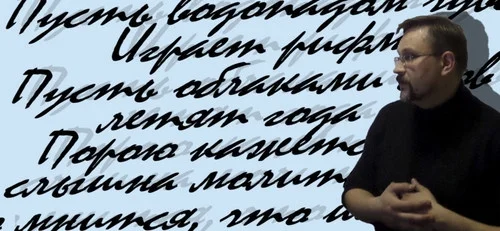 Пусть водопадом
Играет рифм
Пусть облаками
летят года
Порою кажетс
слышна молит
мнится, что